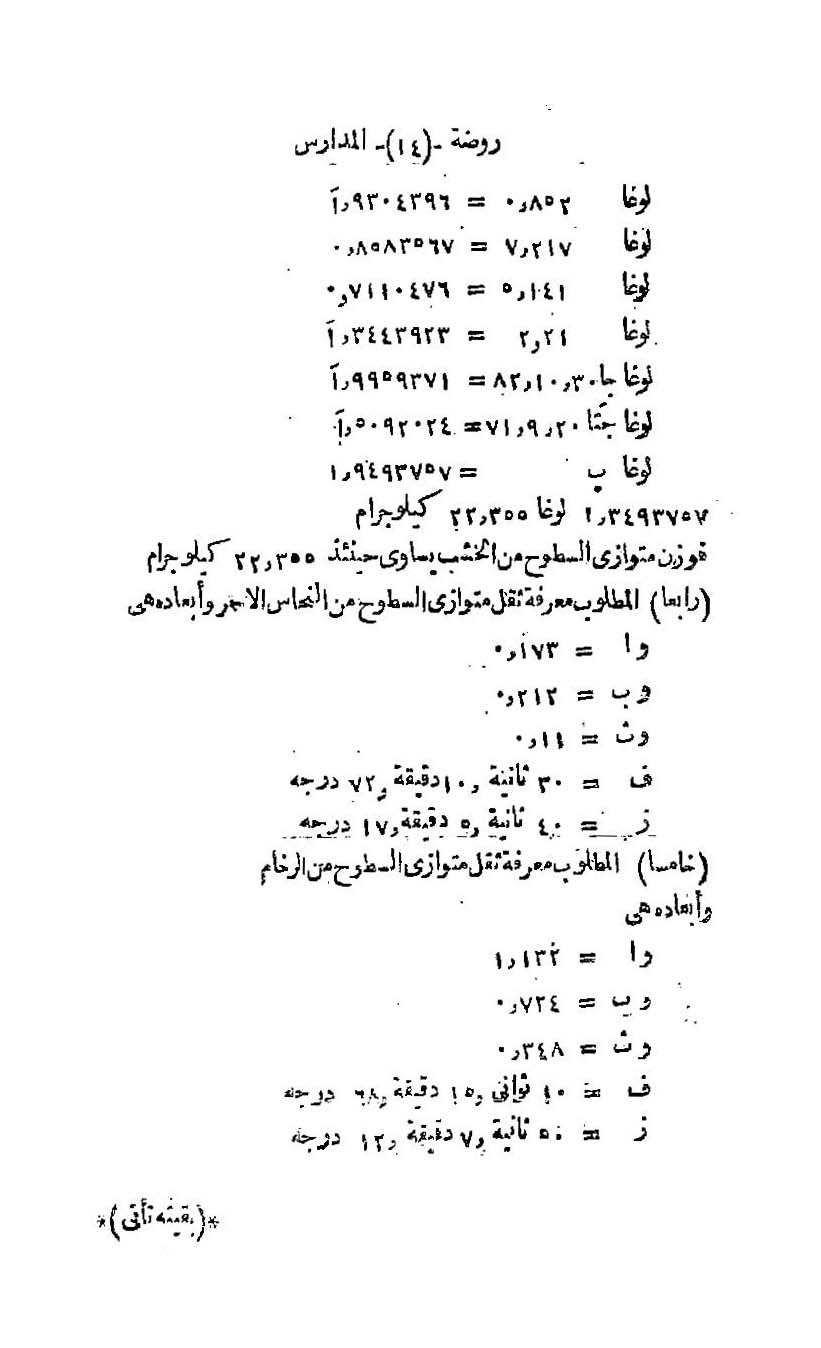 روضة -(١٤)- المدارس
لوغا ٠٫٨٥٢ = ٩٣٠٤٣٩٦٫آ
لوغا ٧٫٢١٧ = ٠٫٨٥٨٣٥٦٧
لوغا ٥٫١٤١ = ٠٫٧١١٠٤٧٦
لوغا ٢٫٢١ = ٣٤٤٣٩٢٣٫آ
لوغا جا ٨٢٫١٠٫٣٠ = ٩٩٥٩٣٧١٫آ
لوغا جتا ٧١٫٩٫٢٠ = ٥٠٩٢٠٢٤٫آ
لوغا ب = ١٫٩٤٩٣٧٥٧
١٫٣٤٩٣٧٥٧ لوغا ٢٢٫٣٥٥ كيلوجرام
فوزن متوازى السطوح من الخشب يساوى حينئذ ٢٢٫٣٥٥ كيلوجرام
(رابعا) المطلوب معرفة ثقل متوازى السطوح من النحاس الاحمر وأبعاده هى
وا = ٠٫١٧٣
وب = ٠٫٢١٢
وث = ٠٫١١
ف = ٣٠ ثانية و١٠ دقيقة و٧٢ درجه
ز = ٤٠ ثانية و٥ دقيقة و١٧ درجه
(خامسا) المطلوب معرفة ثقل متوازى السطوح من الرخام
وأبعاده هى
وا = ١٫١٣٢
وب = ٠٫٧٢٤
وث = ٠٫٣٤٨
ف = ١٠ ثوانى و١٥ دقيقة و٦٨ درجه
ز = ٥٠ ثانية و٧ دقيقة و١٢ درجه
*(بقيته تأتى)*